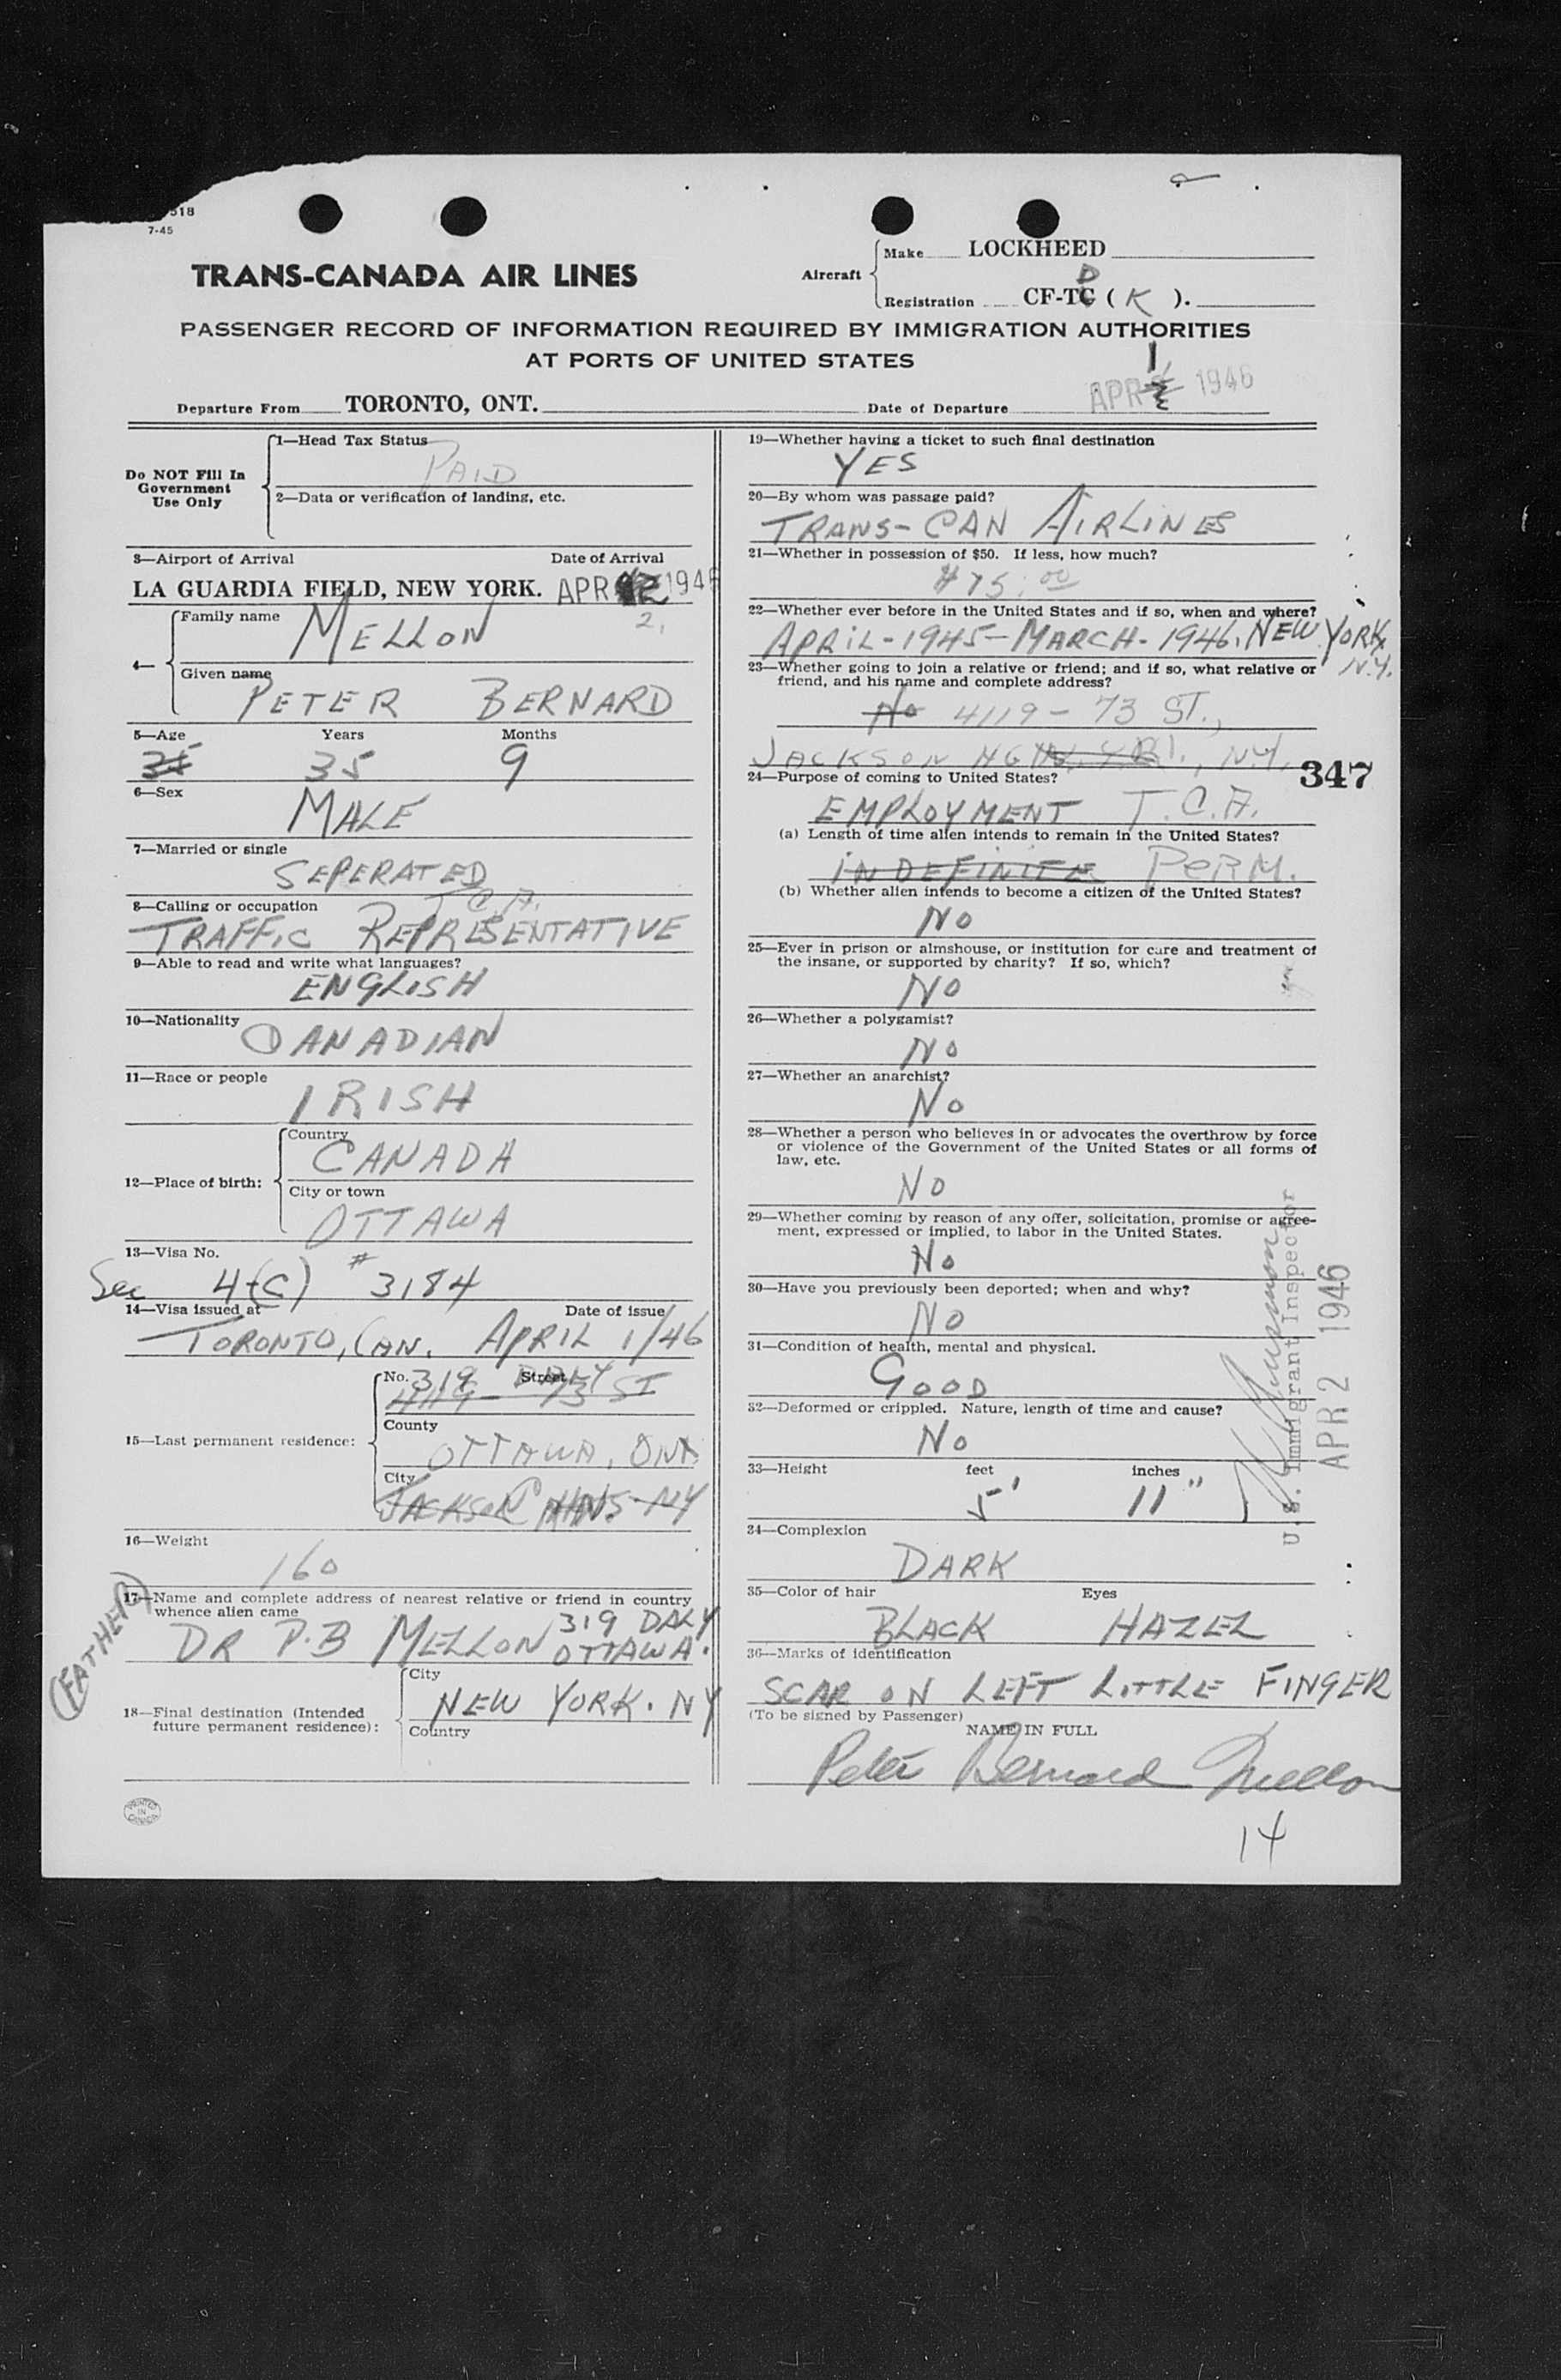 518
7-45
TRANS-CANADA AIR LINES
Aircraft
Make LOCKHEED
Registration CF-TC D ( K ).
PASSENGER RECORD OF INFORMATION REQUIRED BY IMMIGRATION AUTHORITIES
AT PORTS OF UNITED STATES
Departure From TORONTO, ONT. Date of Departure APR 1 1946
Do NOT Fill In
Government
Use Only
1—Head Tax Status
PAID
2—Data or verification of landing, etc.
3—Airport of Arrival Date of Arrival
LA GUARDIA FIELD, NEW YORK. APR 2 1946
2,
4—
Family name
MELLON
Given name
PETER BERNARD
5—Age Years Months
35 35 9
6—Sex
MALE
7—Married or single
SEPERATED
8—Calling or occupation T.C.A.
TRAFFIC REPRESENTATIVE
9—Able to read and write what languages?
ENGLISH
10—Nationality
CANADIAN
11—Race or people
IRISH
12—Place of birth:
Country
CANADA
City or town
OTTAWA
13—Visa No.
Sec 4(C) # 3184
14—Visa issued at Date of issue
TORONTO, CAN. APRIL 1/46
15—Last permanent residence:
No. 319 Street DALY
4119 - 73 ST
County
OTTAWA, ONT
City
JACKSON HTS. NY
16—Weight
160
17—Name and complete address of nearest relative or friend in country
whence alien came
(FATHER)
DR P.B MELLON 319 DALY
OTTAWA.
18—Final destination (Intended
future permanent residence):
City
NEW YORK. NY
Country
PRINTED
IN
CANADA
19—Whether having a ticket to such final destination
YES
20—By whom was passage paid?
TRANS-CAN AIRLINES
21—Whether in possession of $50. If less, how much?
$75.00
22—Whether ever before in the United States and if so, when and where?
APRIL-1945-MARCH-1946. NEW YORK,
N.Y.
23—Whether going to join a relative or friend; and if so, what relative or
friend, and his name and complete address?
No 4119 - 73 ST.,
JACKSON HG , N.Y.
347
24—Purpose of coming to United States?
EMPLOYMENT T.C.A.
(a) Length of time alien intends to remain in the United States?
INDEFINITE PERM.
(b) Whether alien intends to become a citizen of the United States?
NO
25—Ever in prison or almshouse, or institution for care and treatment of
the insane, or supported by charity? If so, which?
NO
26—Whether a polygamist?
NO
27—Whether an anarchist?
NO
28—Whether a person who believes in or advocates the overthrow by force
or violence of the Government of the United States or all forms of
law, etc.
NO
29—Whether coming by reason of any offer, solicitation, promise or agree-
ment, expressed or implied, to labor in the United States.
No
30—Have you previously been deported; when and why?
NO
31—Condition of health, mental and physical.
GOOD
32—Deformed or crippled. Nature, length of time and cause?
No
33—Height feet inches
5' 11"
34—Complexion
DARK
35—Color of hair Eyes
BLACK HAZEL
36—Marks of identification
SCAR ON LEFT LITTLE FINGER
(To be signed by Passenger)
NAME IN FULL
Peter Bernard Mellon
U.S. Immigrant Inspector
APR 2 1946
14